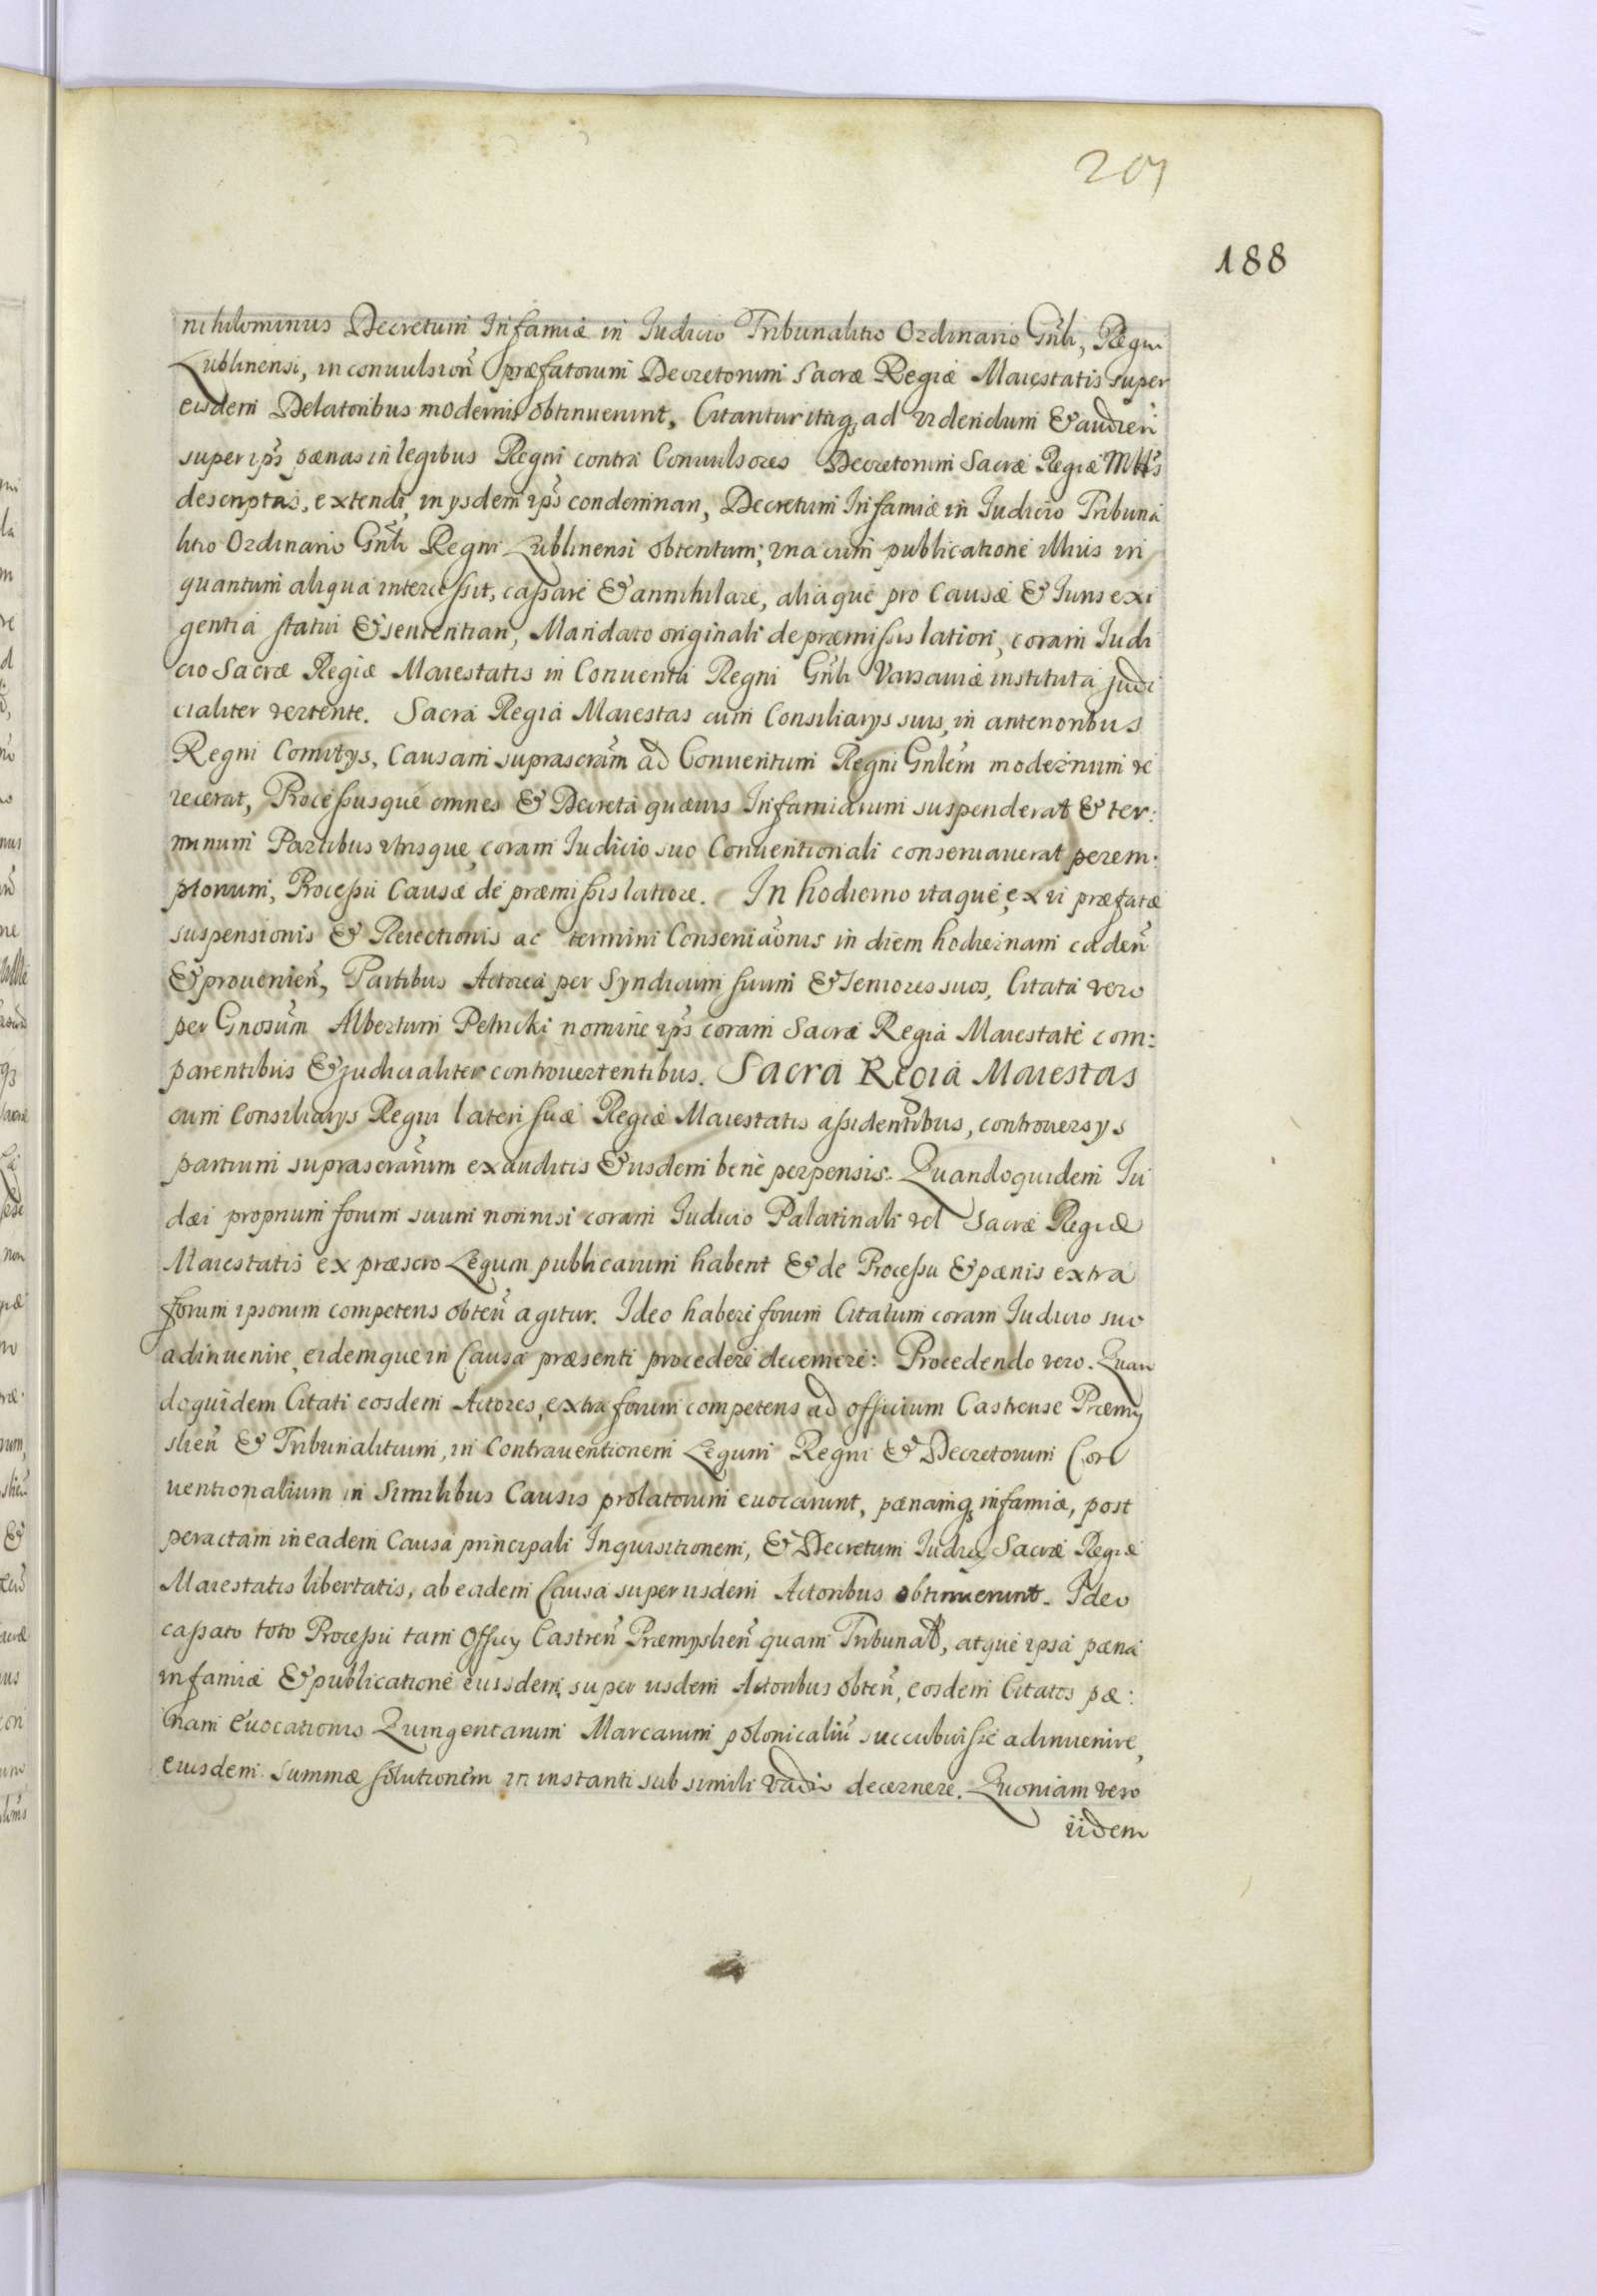 207
188
nihilominus Decretum Infamiæ in Iudicio Tribunalitio Ordinario Gñli, Regni
Lublinensi, in conuulsioñ præfatorum Decretorum Sacræ Regiæ Maiestatis super
eisdem Delatoribus modernis obtinuerunt, Citantur itaq, ad videndum & audieñ
super ips̃ pænas in legibus Regni contra Conuulsores Decretorum Sacræ Regiæ Mttis
descriptas, extendi, in ysdem ips̃ condemnari, Decretum Infamiæ in Iudicio Tribuna
litio Ordinario Gñli Regni Lublinensi obtentum; vna cum publicatione illius in
quantum aliqua intercessit, cassare & annihilare, aliaque pro Causæ & Iuris exi
gentia statui & sententiari, Mandato originali de præmissis latiori, coram Iudi
cio Sacræ Regiæ Maiestatis in Conuentu Regni Gñli Varsauiæ instituta judi
cialiter vertente. Sacra Regia Maiestas cum Consiliarys suis, in anterioribus
Regni Comitys, Causam suprascrãm ad Conuentum Regni Gnlẽm modernum re
iecerat, Processusque omnes & Decreta quæuis Infamiarum suspenderat & ter:
minum Partibus vtrisque, coram Iudicio suo Conuentionali conseruauerat perem:
ptorium, Processu Causæ de præmissis latiore. In hodierno itaque, ex vi præfatæ
suspensionis & Reiectionis ac termini Conseruãonis in diem hodiernam cadeñ
& prouenieñ, Partibus Actorea per Syndicum suum & Seniores suos, Citata vero
per Gnosũm Albertum Petricki nomine ips̃ coram Sacra Regia Maiestate com:
parentibus & judicialiter controuertentibus. Sacra Regia Maiestas
cum Consiliarys Regni lateri suæ Regiæ Maiestatis assidentibus, controuersys
partium suprascrãrum exauditis & iisdem bene perpensis. Quandoquidem Iu
dæi proprium forum suum nonnisi coram Iudicio Palatinali vel Sacræ Regiæ
Maiestatis ex præscro Legum publicarum habent & de Processu & pænis extra
forum ipsorum competens obteñ agitur. Ideo haberi forum Citatum coram Iudicio suo
adinuenire, eidemque in Causa præsenti procedere decernere: Procedendo vero. Quan
doquidem Citati eosdem Actores, extra forum competens ad officium Castrense Præmy
slieñ & Tribunalitium, in Contrauentionem Legum Regni & Decretorum Con
uentionalium in Similibus Causis prolatorum euocarunt, pænamq, infamiæ, post
peractam in eadem Causa principali Inquisitionem, & Decretum Iudicy Sacræ Regiæ
Maiestatis libertatis, ab eadem Causa super iisdem Actoribus obtinuerunt. Ideo
cassato toto Processu tam Officy Castreñ Præmyslieñ quam Tribunał, atque ipsa pæna
infamiæ & publicatione eiusdem, super iisdem Actoribus obteñ, eosdem Citatos pæ:
nam Euocationis Quingentarum Marcarum polonicaliũ succubuisse adinuenire,
eiusdem summæ solutionem in instanti sub simili vadio decernere. Quoniam vero
iidem